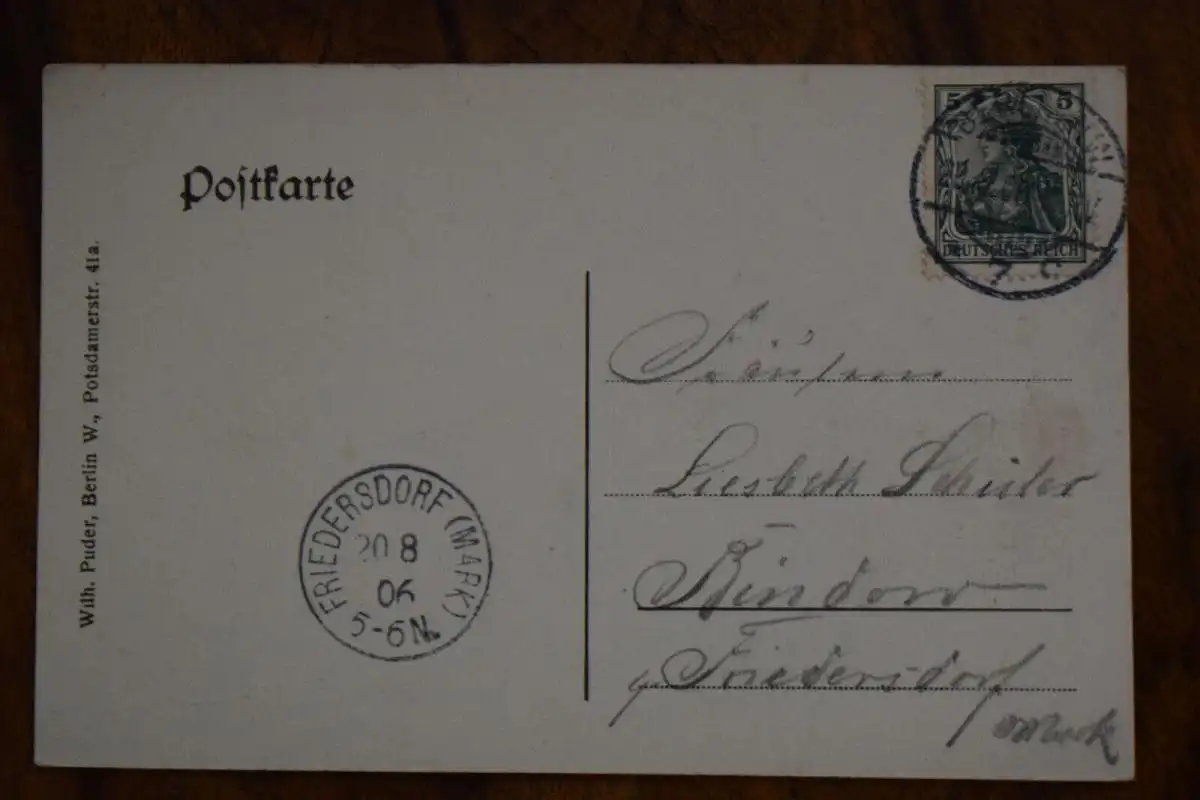 Poſtkarte
Wilh. Puder, Berlin W., Potsdamerstr. 41a.
5 5
DEUTSCHES REICH
FRIEDERSDORF (MARK)
20 8
06
5-6N.
Fräulein
Liesbeth Schüler
Bindow
Friedersdorf
Mark